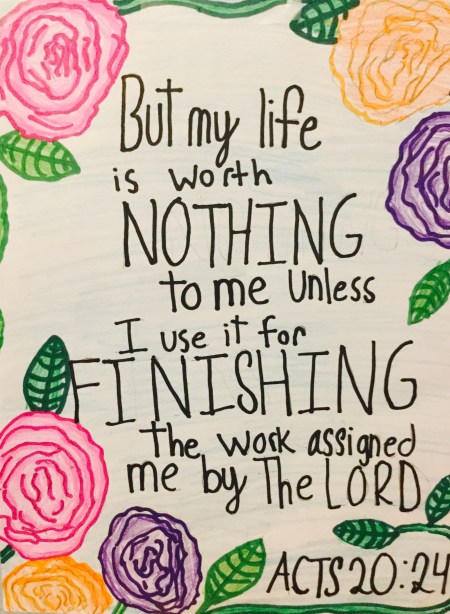 But my life
is worth
NOTHING
to me unless
I use it for
FINISHING
the work assigned
me by The LORD
ACTS 20:24